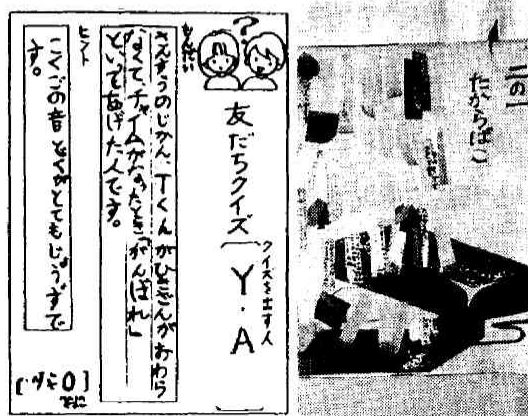 友だちクイズ
クイズを出す人
Y・A
もんだい
さんすうのじかんに、Tくんがひきざんがおわら
なくて、チャイムがなったとき「がんばれ」
といってあげた人です。
ヒント
こくごの音どくがとてもじょうずで
す。
?
たからばこ